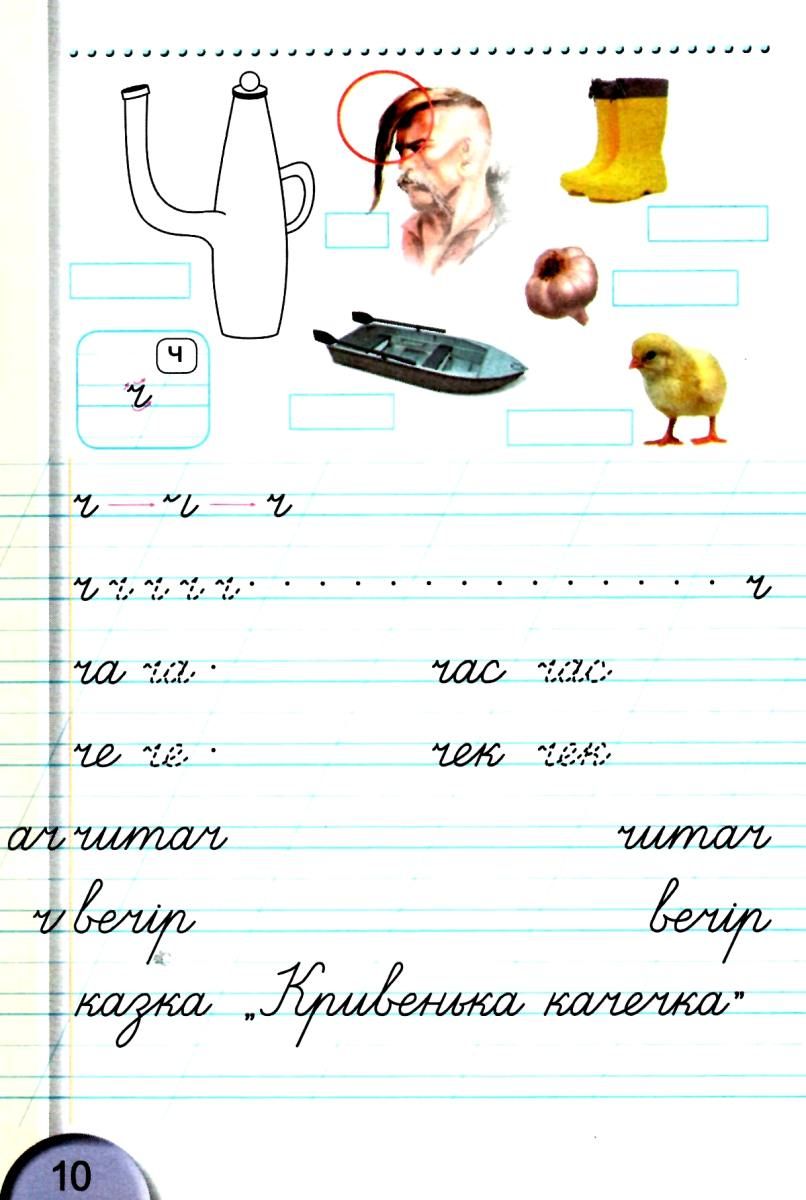 ч
ч
ч ч ч
ч ч ч ч ч ч
ча ча час час
че че чек чек
ач читач читач
ч вечір вечір
казка „Кривенька качечка”
10